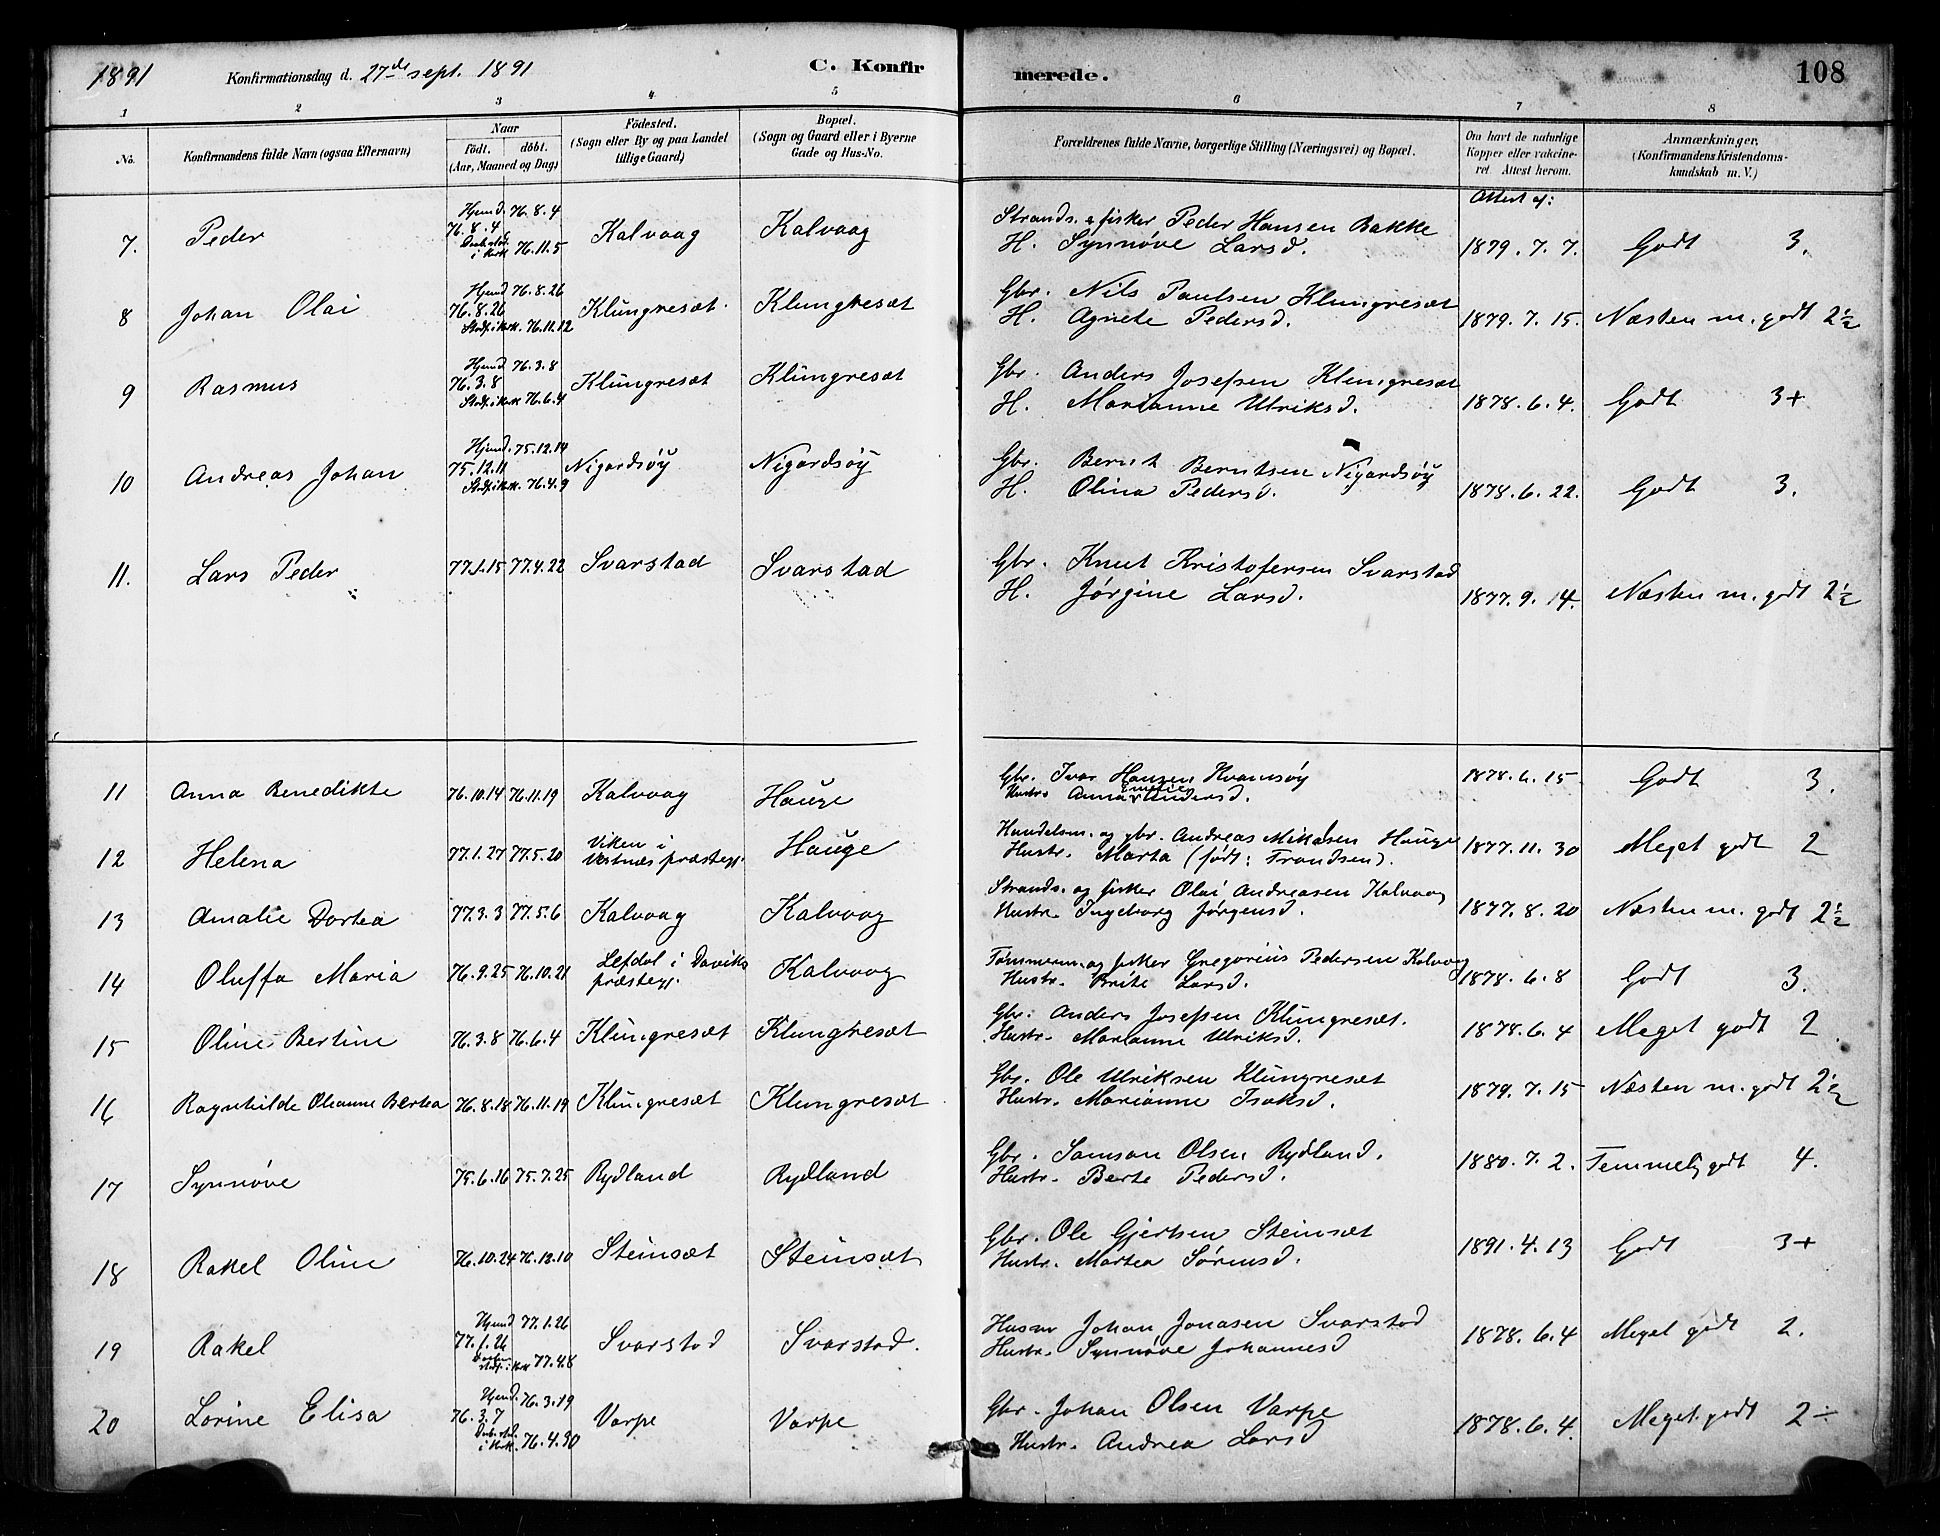 1891 Konfirmationsdag d. 27de sept. 1891 C. Konfir merede. 108
1 2 3 4 5 6 7 8
No. Konfirmandens fulde Navn (ogsaa Efternavn) Naar Födested. Bopæl. Forældrenes fulde Navne, borgerlige Stilling (Næringsvei) og Bopæl. Om havt de naturlige Anmærkninger.
Födt. döbt. (Sogn eller By og paa Landet (Sogn og Gaard eller i Byerne Kopper eller vakcine- (Konfirmandens Kristendoms-
(Aar, Maaned og Dag) tillige Gaard) Gade og Hus-No. ret. Attest herom. kundskab m. V.)
Attest af:
Hjemd. 76.8.4 Strands. & fisker Peder Hansen Bakke
7. Peder 76.8.4 Kalvaag Kalvaag H. Synnøve Larsd. 1879.7.7. Godt 3.
i kirk 76.11.5
Hjemd 76.8.26 Gbr. Nils Paulsen Klungresæt
8 Johan Olai 76.8.26 Klungresæt Klungresæt H. Agnete Pedersd. 1879.7.15. Næsten m. godt 2½
Stadf. i kirk. 76.11.12
Hjemd 76.3.8 Gbr. Anders Josefsen Klungresæt
9 Rasmus 76.3.8 Klungresæt Klungresæt H. Marianne Ulriksd. 1878.6.4. Godt 3+
Stadf. i kirk 76.6.4
Hjemd. 75.12.14 Gbr. Bernt Berntsen Nigardsøy
10 Andreas Johan 75.12.11 Nigardsøy Nigardsøy H. Olina Pedersd. 1878.6.22. Godt 3.
Stadf. i kirk. 76.4.9
Gbr. Knut Kristofersen Svarstad
11. Lars Peder 77.1.15 77.4.22 Svarstad Svarstad H. Jørgine Larsd. 1877.9.14. Næsten m. godt 2½
Gbr. Ivar Hansen Kvamsøy
11 Anna Benedikte 76.10.14 76.11.19 Kalvaag Hauge Hustr. Anna Andersd. 1878.6.15 Godt 3.
Handelsm. og gbr. Andreas Mikalsen Hauge
12 Helena 77.1.27 77.5.20 Viken i Vestnæs præstegj. Hauge Hustr. Marta (født: Frandsen). 1877.11.30 Meget godt 2
Strands. og fisker Olai Andreasen Kalvaag
13 Amalie Dortea 77.3.3 77.5.6 Kalvaag Kalvaag Hustr. Ingeborg Jørgensd. 1877.8.20 Næsten m. godt 2½
Tømmerm. og fisker Gregorius Pedersen Kalvaag
14 Oluffa Maria 76.9.25 76.10.21 Lefdal i Daviks præstegj. Kalvaag Hustr. Brite Larsd. 1878.6.8 Godt 3.
Gbr. Anders Josefsen Klungresæt.
15 Oline Bertine 76.3.8 76.6.4 Klungresæt Klungresæt Hustr. Marianne Ulriksd. 1878.6.4 Meget godt 2.
Gbr. Ole Ulriksen Klungresæt
16 Ragnhilde Oleanne Bertea 76.8.18 76.11.19 Klungresæt Klungresæt Hustr. Marianne Isaksd. 1879.7.15 Næsten m. godt 2½
Gbr. Samson Olsen Rydland.
17 Synnøve 75.6.26 75.7.25 Rydland Rydland Hustr. Berte Pedersd. 1880.7.2. Temmelig godt 4.
Gbr. Ole Gjertsen Steinsæt
18 Rakel Oline 76.10.24 76.12.10 Steinsæt Steinsæt Hustr. Martea Sørensd. 1891.4.13 Godt 3+
Hjemd 77.1.26 Husm Johan Jonasen Svarstad
19 Rakel 77.1.26 Svarstad Svarstad. Hustr. Synnøve Johannesd 1878.6.4 Meget godt 2.
stadf. i kirk 77.4.8
Hjemd. 76.3.19 Gbr. Johan Olsen Varpe
20 Lorine Elisa 76.3.7 Varpe Varpe Hustr. Andrea Larsd 1878.6.4. Meget godt 2÷
i kirk. 76.4.30